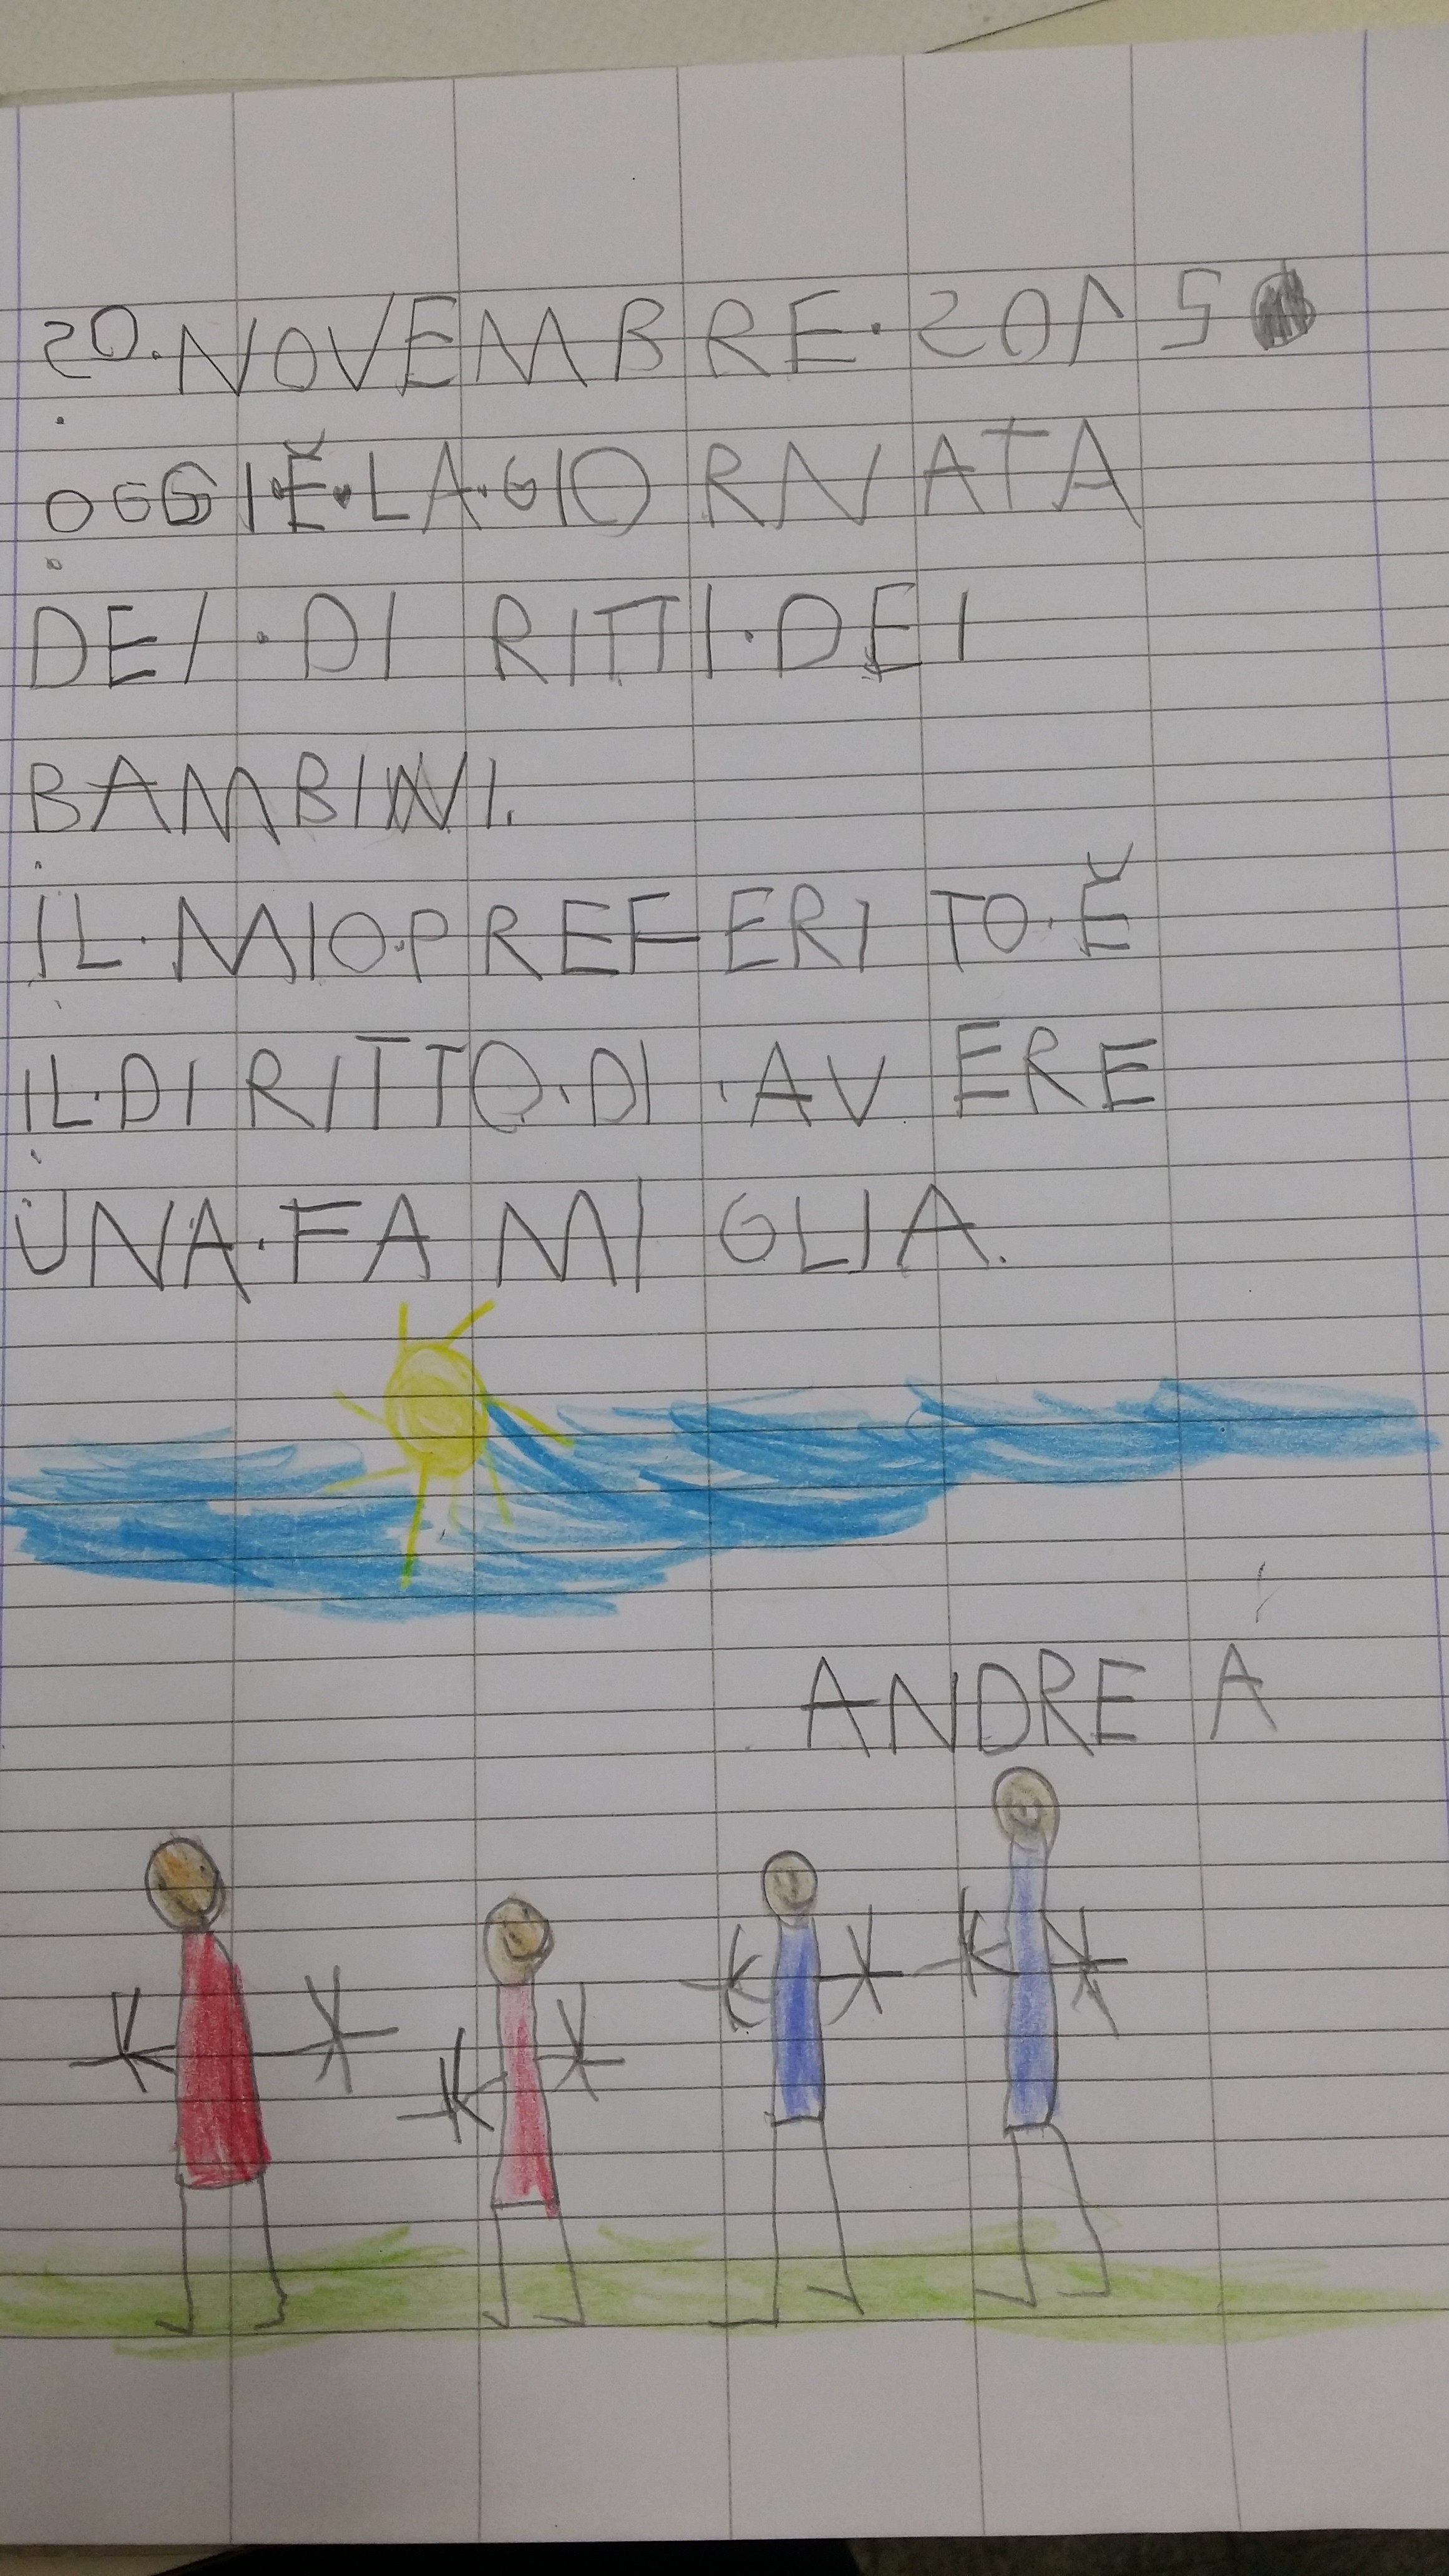 20.NOVEMBRE.2015
OGGI.È.LA.GIORNATA
DEI.DIRITTI.DEI
BAMBINI.
IL.MIO.PREFERITO.È
IL.DIRITTO.DI.AVERE
UNA.FAMIGLIA.
ANDREA